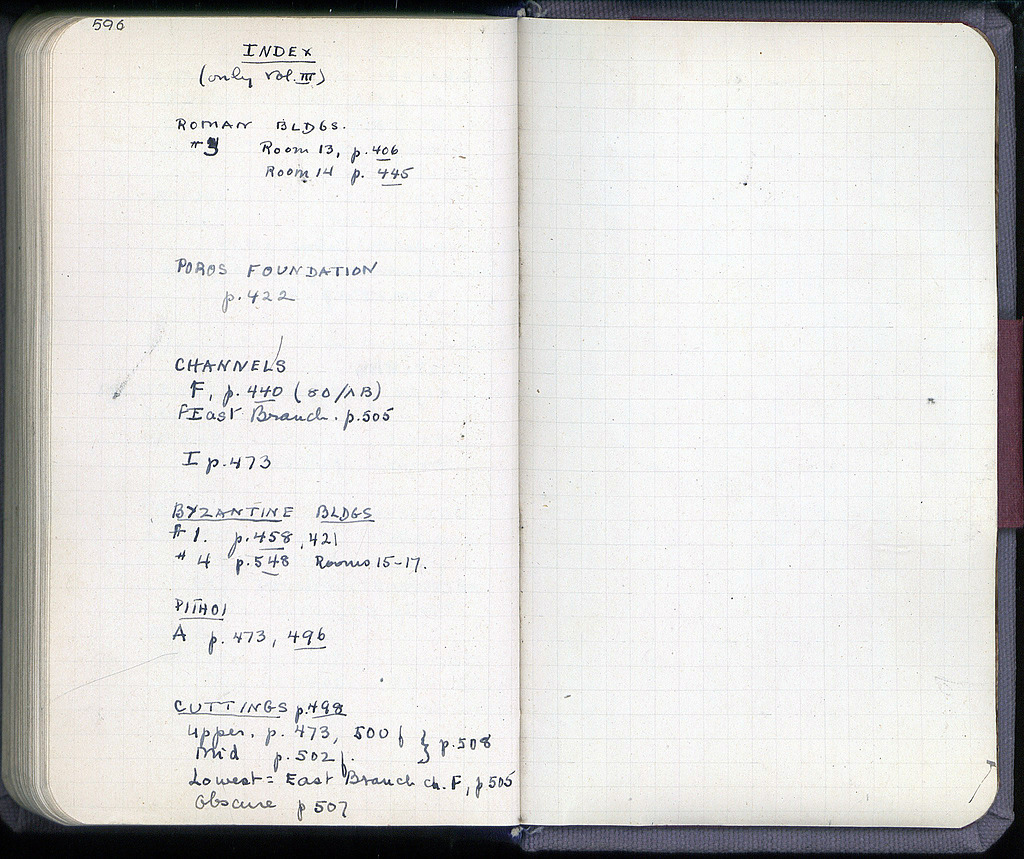 596
INDEX
(only Vol. III)
ROMAN BLDGS.
#3 Room 13, p. 406
Room 14 p. 445
POROS FOUNDATION
p. 422
CHANNELS
F, p. 440 (80/ΛΒ)
East Branch. p. 505
I p. 473
BYZANTINE BLDGS
#1. p. 458, 421
#4 p. 548 Rooms 15-17.
PITHOI
A p. 473, 496
CUTTINGS p. 498
upper. p. 473, 500 f } p. 508
Mid p. 502 f.
Lowest = East Branch ch. F, p 505
obscure p 507